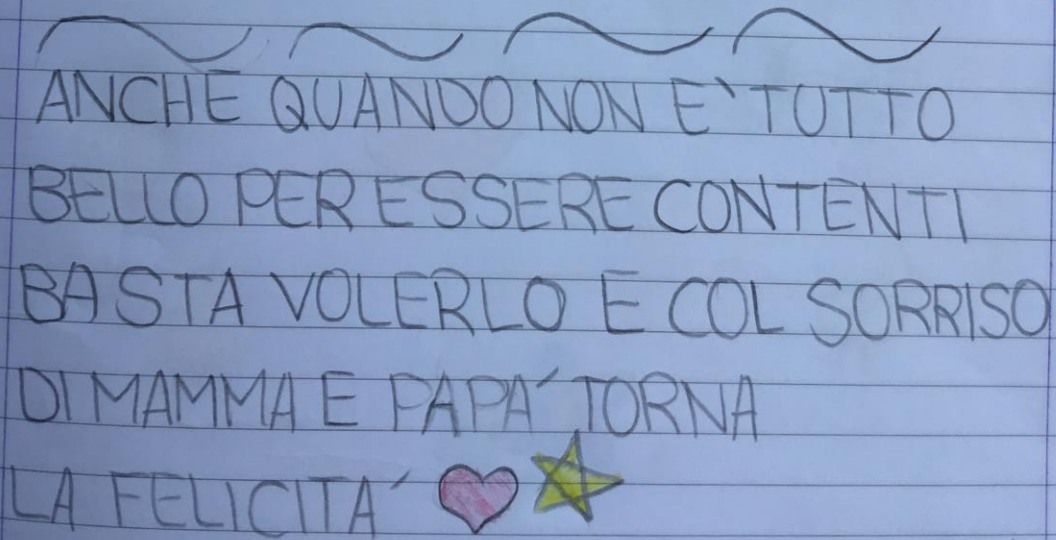 ANCHE QUANDO NON E` TUTTO
BELLO PER ESSERE CONTENTI
BASTA VOLERLO E COL SORRISO
DI MAMMA E PAPA´ TORNA
LA FELICITA´